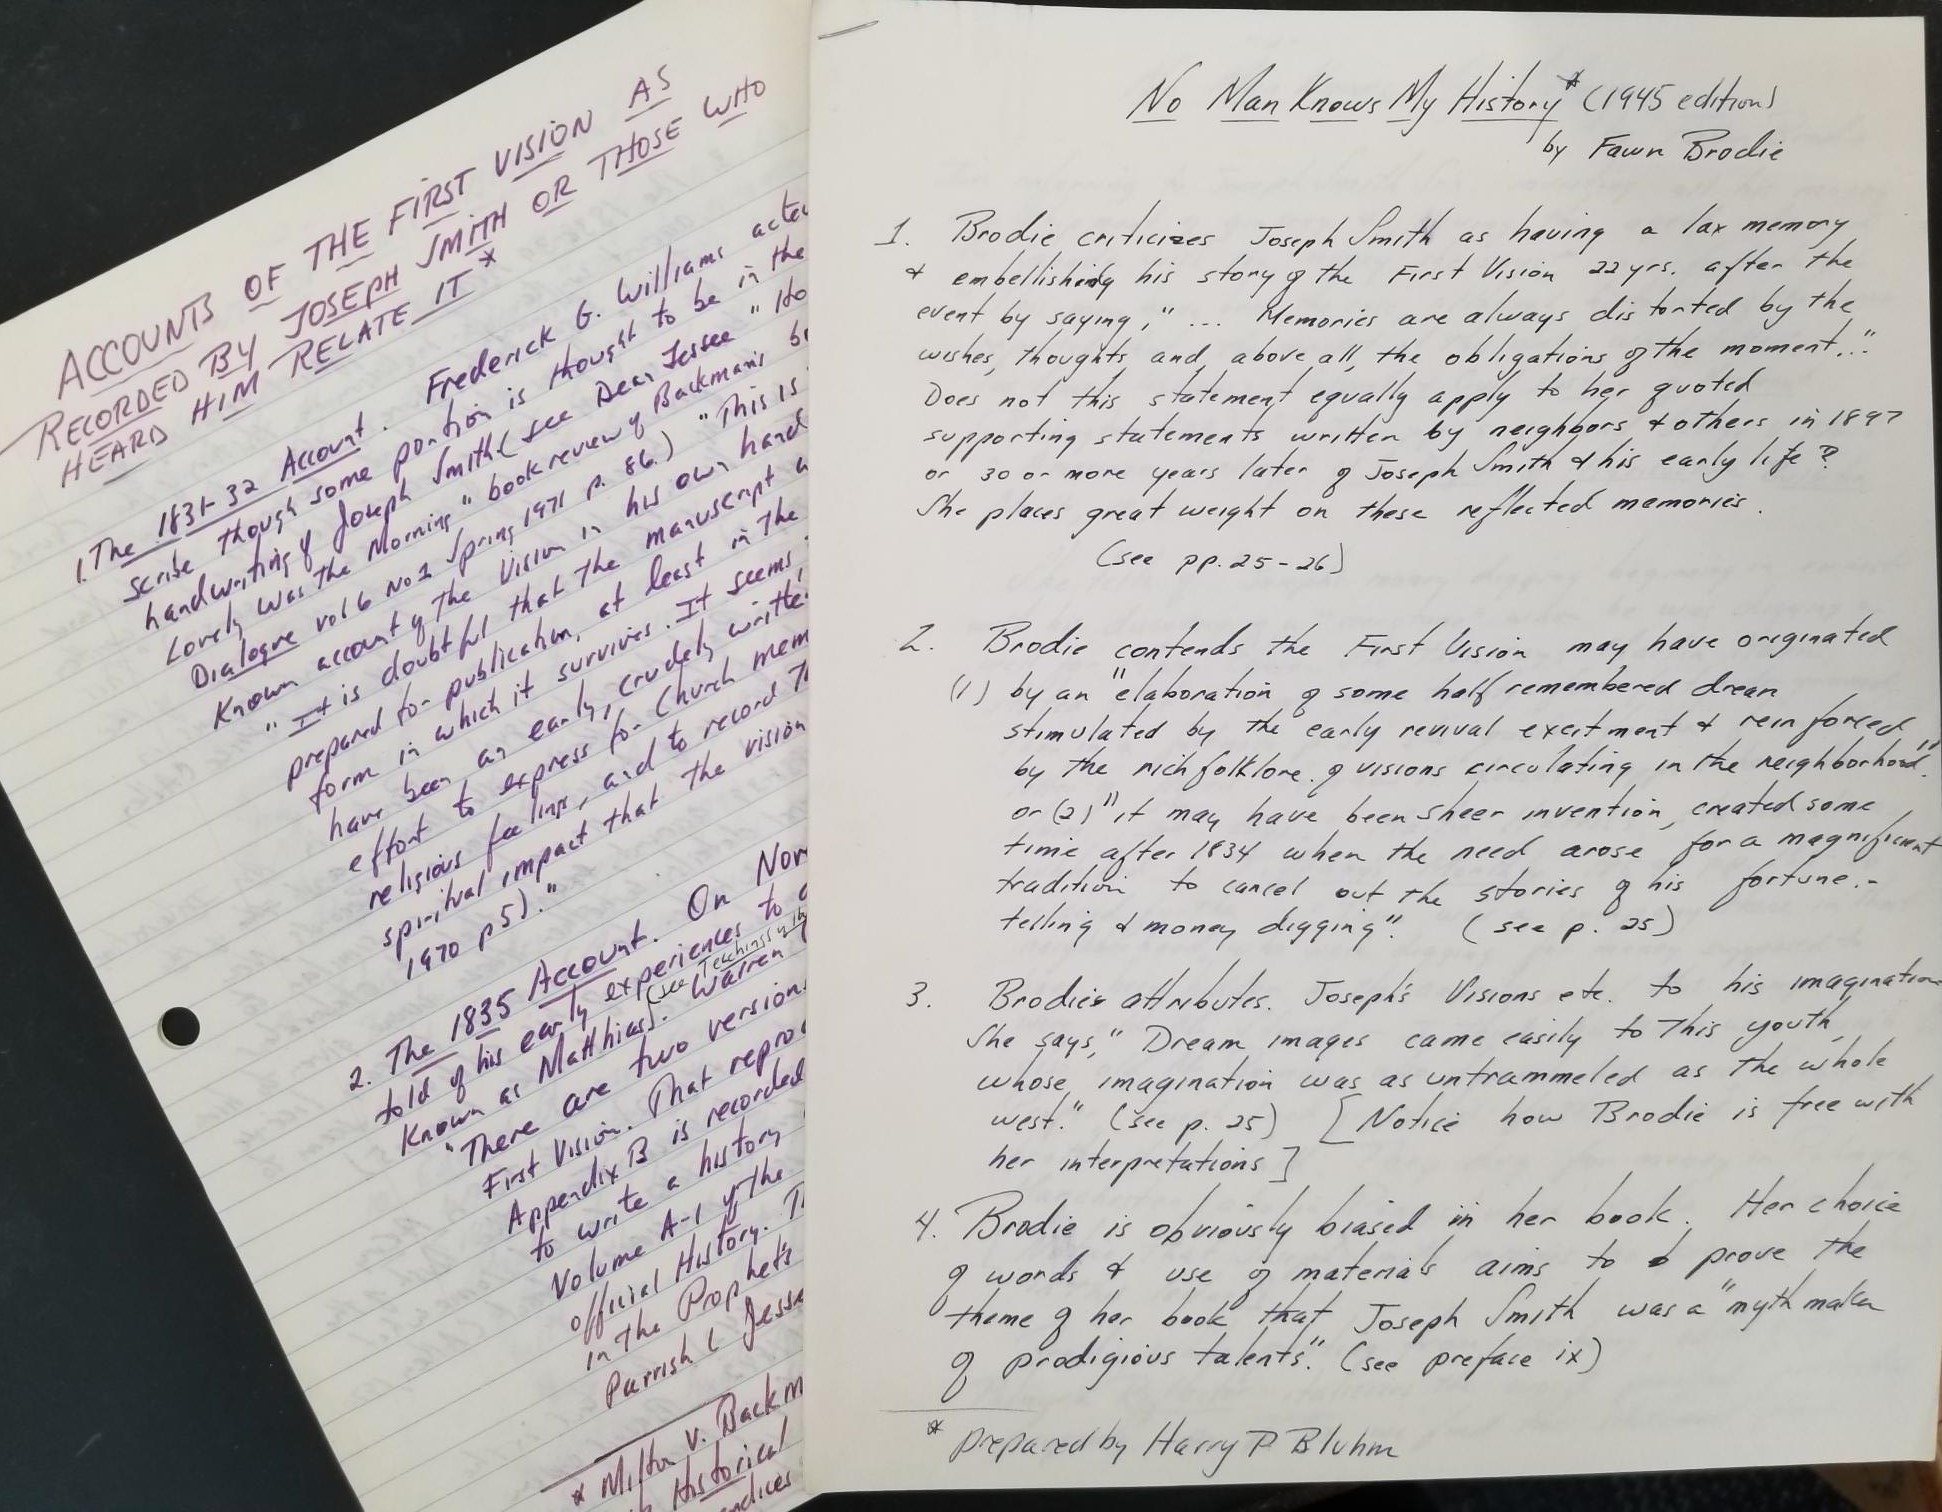 ACCOUNTS OF THE FIRST VISION AS
RECORDED BY JOSEPH SMITH OR THOSE WHO
HEARD HIM RELATE IT *
1. The 1831-32 Account. Frederick G. Williams acted
scribe though some portion is thought to be in the
handwriting of Joseph Smith (see Dean Jessee "Ho
Lovely was the Morning" book review of Backman's
Dialogue vol 6 No 1 Spring 1971 p. 86.) "This is
Known account of the Vision in his own hand
"It is doubtful that the manuscript
prepared for publication, at least in the
form in which it survives. It seems
have been an early, crudely writte
effort to express for Church mem
religious feelings, and to record
spiritual impact that the vision
1970 p 5)."
2. The 1835 Account. On Nov
told of his early experiences to
(see Teachings
Known as Matthias). Warren
"There are two version
First Vision. That repro
Appendix B is recorded
to write a history
Volume A-1 of the
official History.
in the Prophet's
Parrish ( Jesse
* Milton V. Backm
Historical
ndices
No Man Knows My History* (1945 edition)
by Fawn Brodie
1. Brodie criticizes Joseph Smith as having a lax memory
& embellishing his story of the First Vision 22 yrs. after the
event by saying, "... Memories are always distorted by the
wishes, thoughts, and, above all, the obligations of the moment..."
Does not this statement equally apply to her quoted
supporting statements written by neighbors & others in 1897
or 30 or more years later of Joseph Smith & his early life?
She places great weight on these reflected memories.
(see pp. 25-26)
2. Brodie contends the First Vision may have originated
(1) by an "elaboration of some half remembered dream
stimulated by the early revival excitment & reinforced
by the rich folklore of visions circulating in the neighborhood"
or (2) "it may have been sheer invention, created some
time after 1834 when the need arose for a magnificent
tradition to cancel out the stories of his fortune-
telling & money digging". (see p. 25)
3. Brodie attributes Joseph's Visions etc. to his imagination
She says, "Dream images came easily to this youth,
whose imagination was as untrammeled as the whole
west." (see p. 25) [Notice how Brodie is free with
her interpretations]
4. Brodie is obviously biased in her book. Her choice
of words & use of materials aims to prove the
theme of her book that Joseph Smith was a "myth maker
of prodigious talents". (see preface ix)
* prepared by Harry P. Bluhm